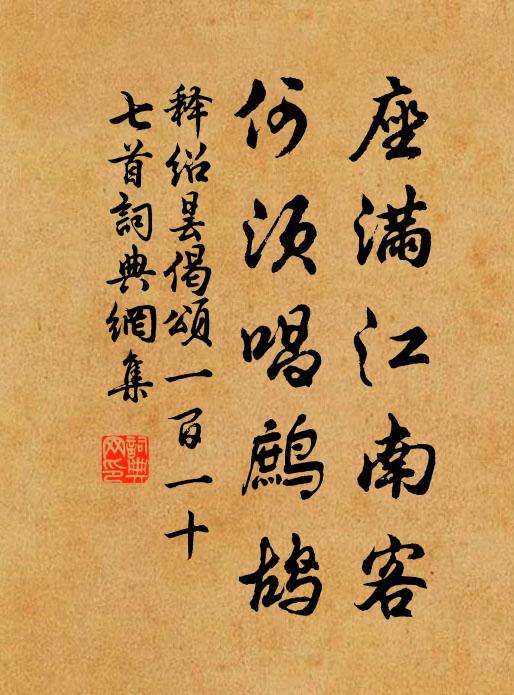 座满江南客
何须唱鹧鸪
释绍昙偈頌一百一十
七首詞典網集
詞典
网印